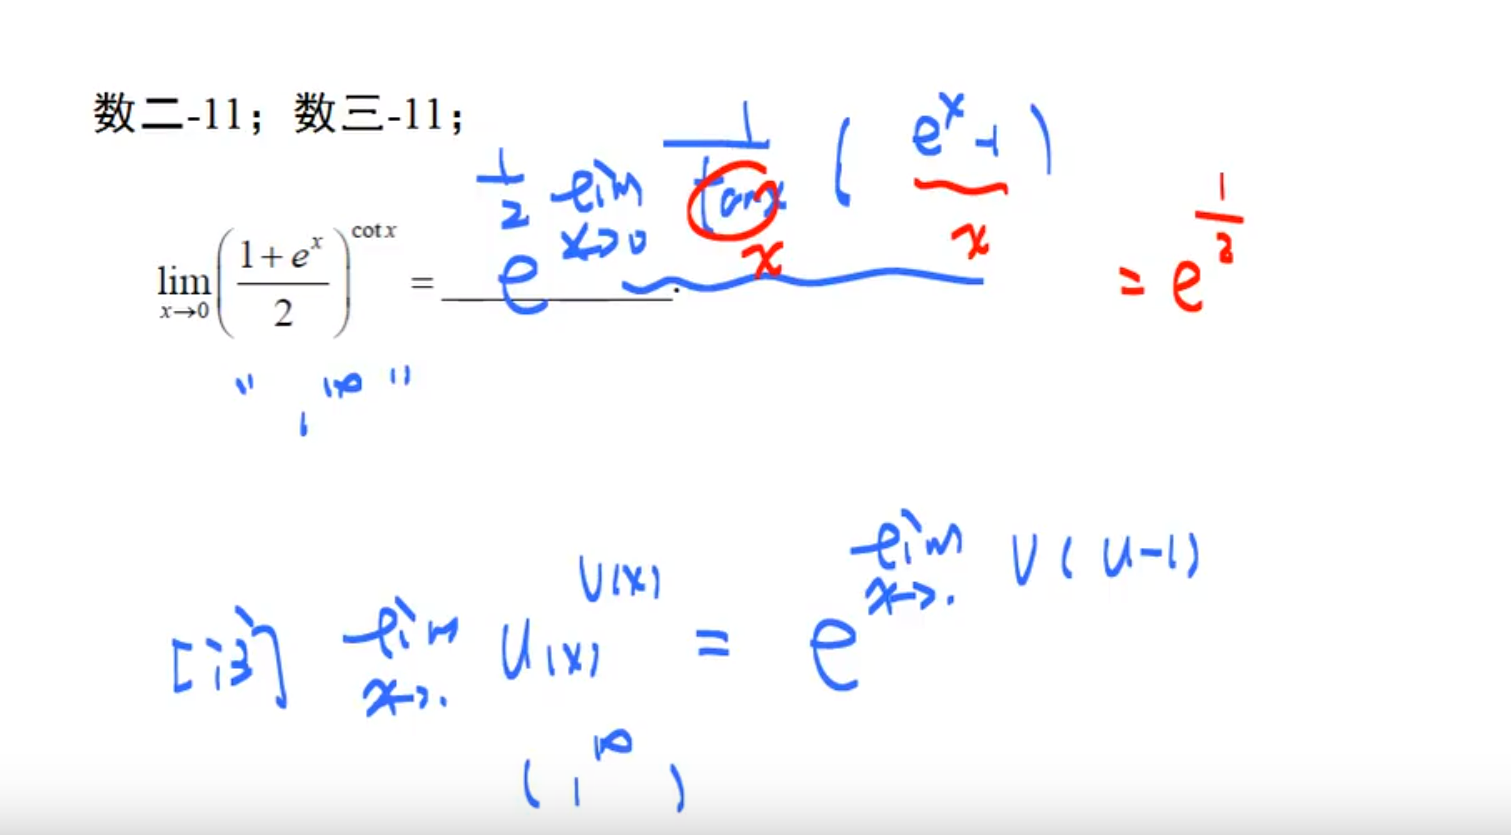 数二-11；数三-11；
lim x→0 ((1+e^x)/2)^cot x = e^(1/2 lim x→0 1/tanx (e^x-1)) . = e^(1/2)
x x
" 1^∞ "
[注] lim x→. u(x)^v(x) = e^(lim x→. v(u-1))
(1^∞)